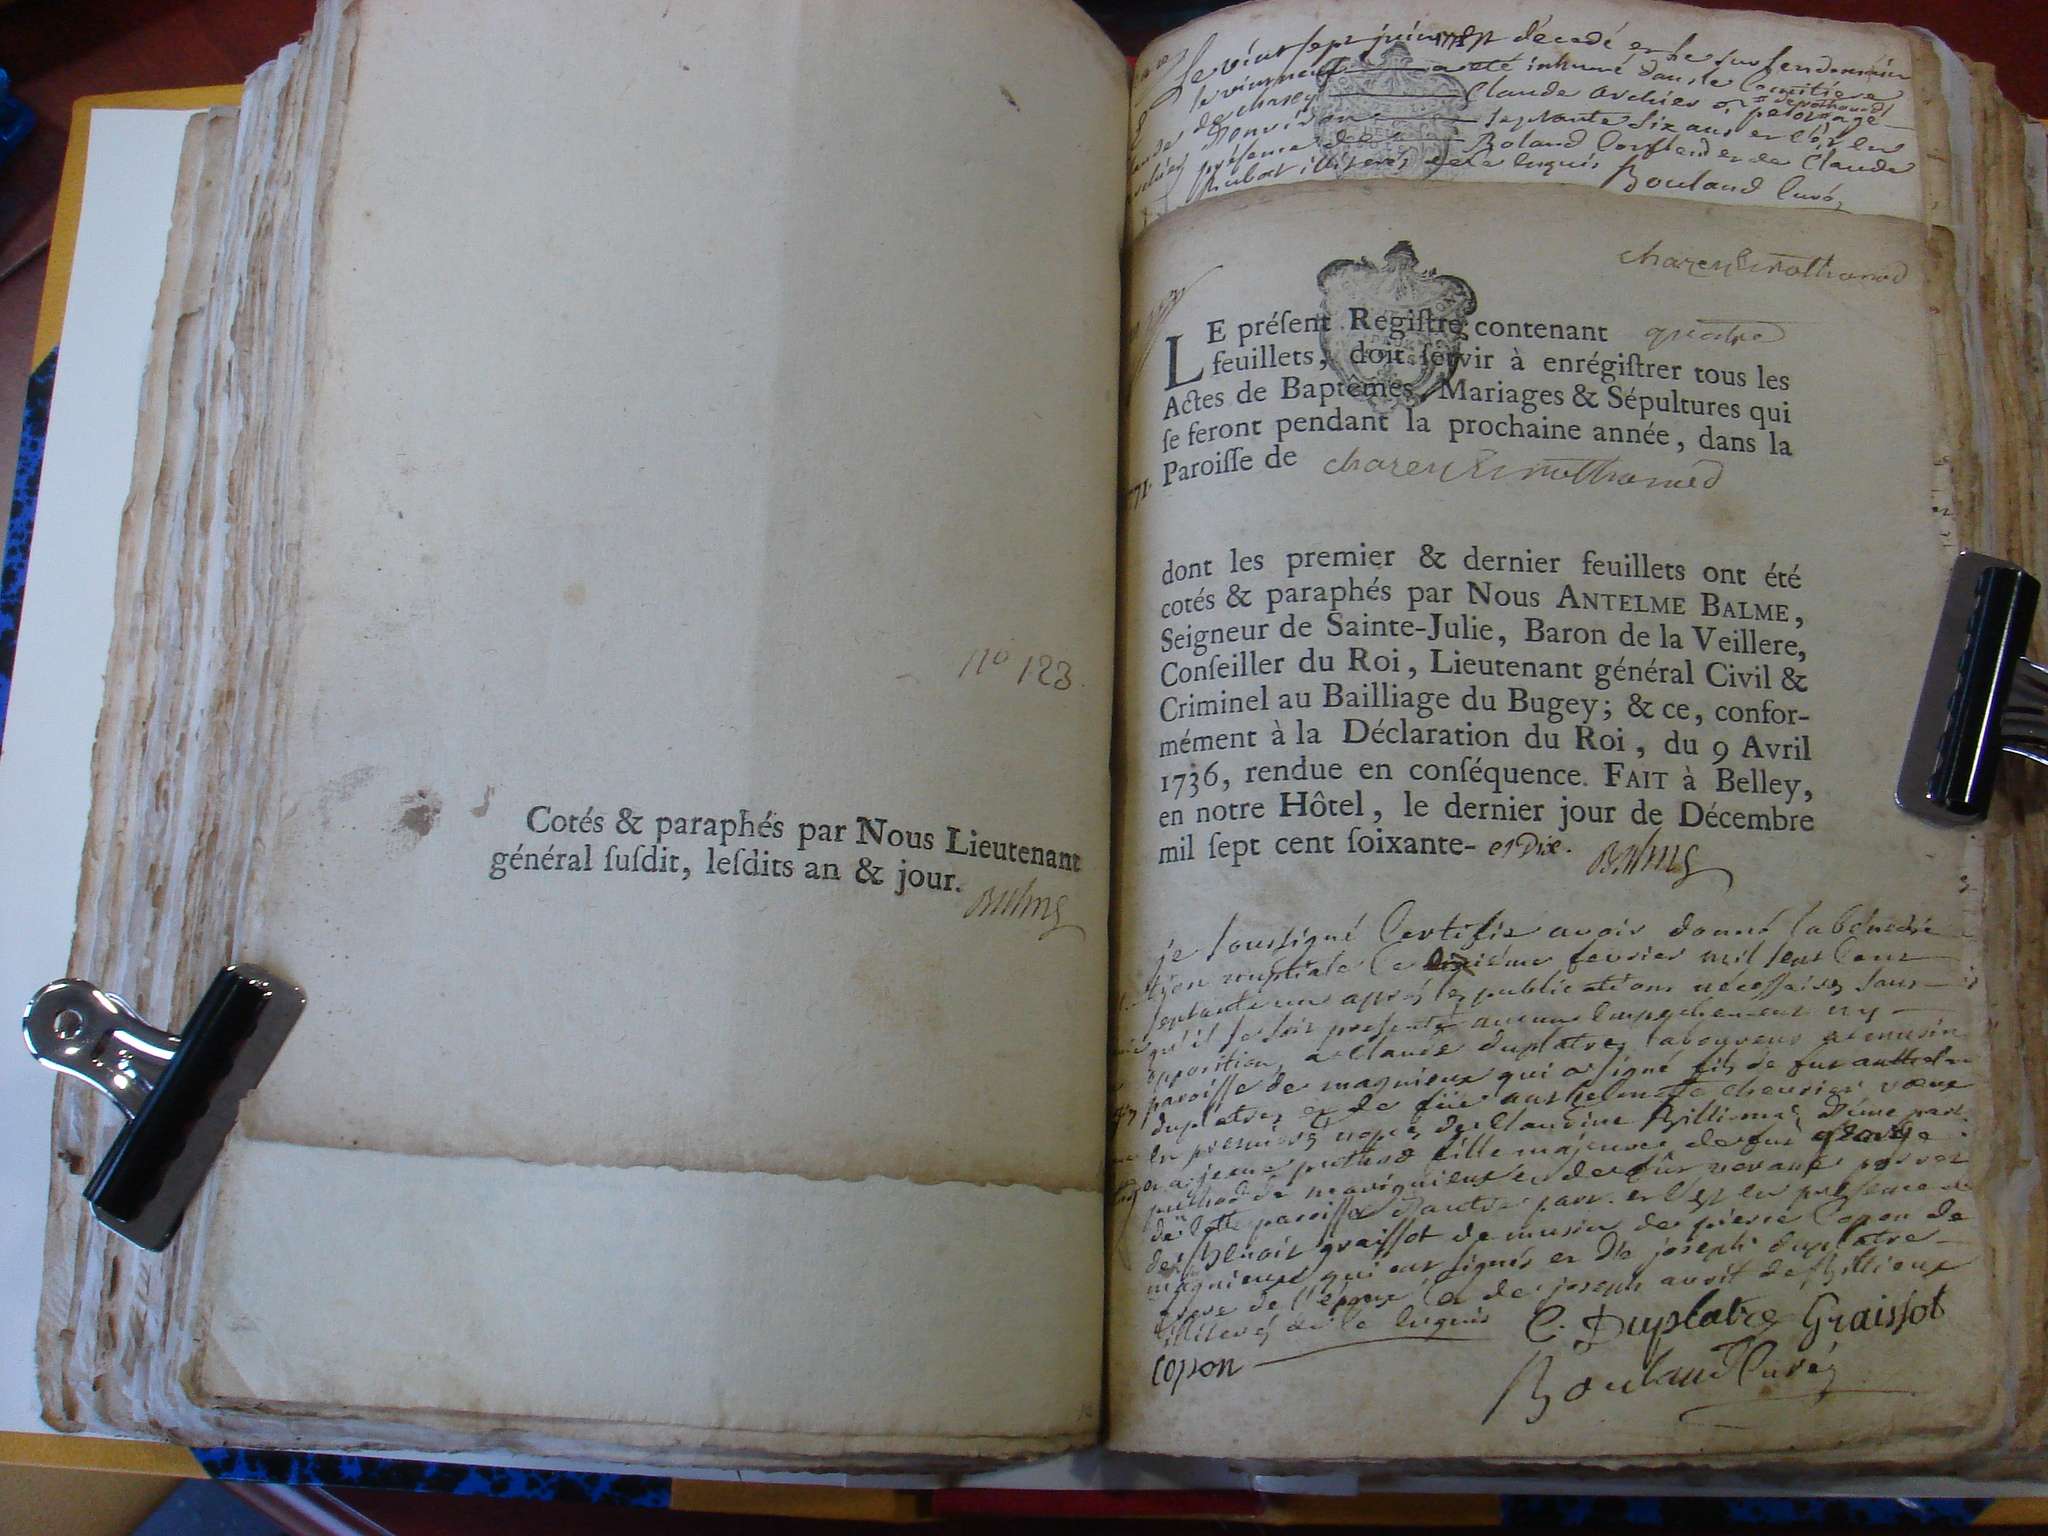 no 123.
Cotés & paraphés par Nous Lieutenant
général ſuſdit, leſdits an & jour.
Balme
Le vint sept juin est décedé et le surlendemain
le vint neuf a eté inhumé dans le Cemitiere
de chasey Claude
D'environ septante six ans et C'es en
présence de Roland et de Claude
illiterés de ce enquis Bouland Curé
charey & rothonod
LE préſent Regiſtre contenant quatre
feuillets, doit ſervir à enrégiſtrer tous les
Actes de Baptêmes, Mariages & Sépultures qui
ſe feront pendant la prochaine année, dans la
Paroiſſe de charey & rothonod
dont les premier & dernier feuillets ont été
cotés & paraphés par Nous ANTELME BALME,
Seigneur de Sainte-Julie, Baron de la Veillere,
Conſeiller du Roi, Lieutenant général Civil &
Criminel au Bailliage du Bugey; & ce, confor-
mément à la Déclaration du Roi, du 9 Avril
1736, rendue en conſéquence. FAIT à Belley,
en notre Hôtel, le dernier jour de Décembre
mil ſept cent ſoixante- et Dix. Balme
je soussigné Certifie avoir donné la bénedic
tion nuptiale le fevrier mil sept Cent
septante un aprés les publications nécessaires sans
qu'il se soit presenté aucun Empechement ny
opposition, a Claude duplatre laboureur a musin
paroisse de magnieux qui a signé fils de feu anthelme
duplatre et de füe anthelmette chevrier vœuf
en premiere nopces de Claudine Billiemaz D'une part
et a jeane puthod fille majeure de feu george
puthod de marignieux et de füe
de laditte paroisse D'autre part. et C'est en présence de
de Benoit graissot de musin de pierre Copon de
magnieux qui ont signés et De joseph duplatre
frere de l'epoux et de joseph avrit de Billieux
illiterés de ce enquis C. Duplatre Graissot
Copon Bouland Curé